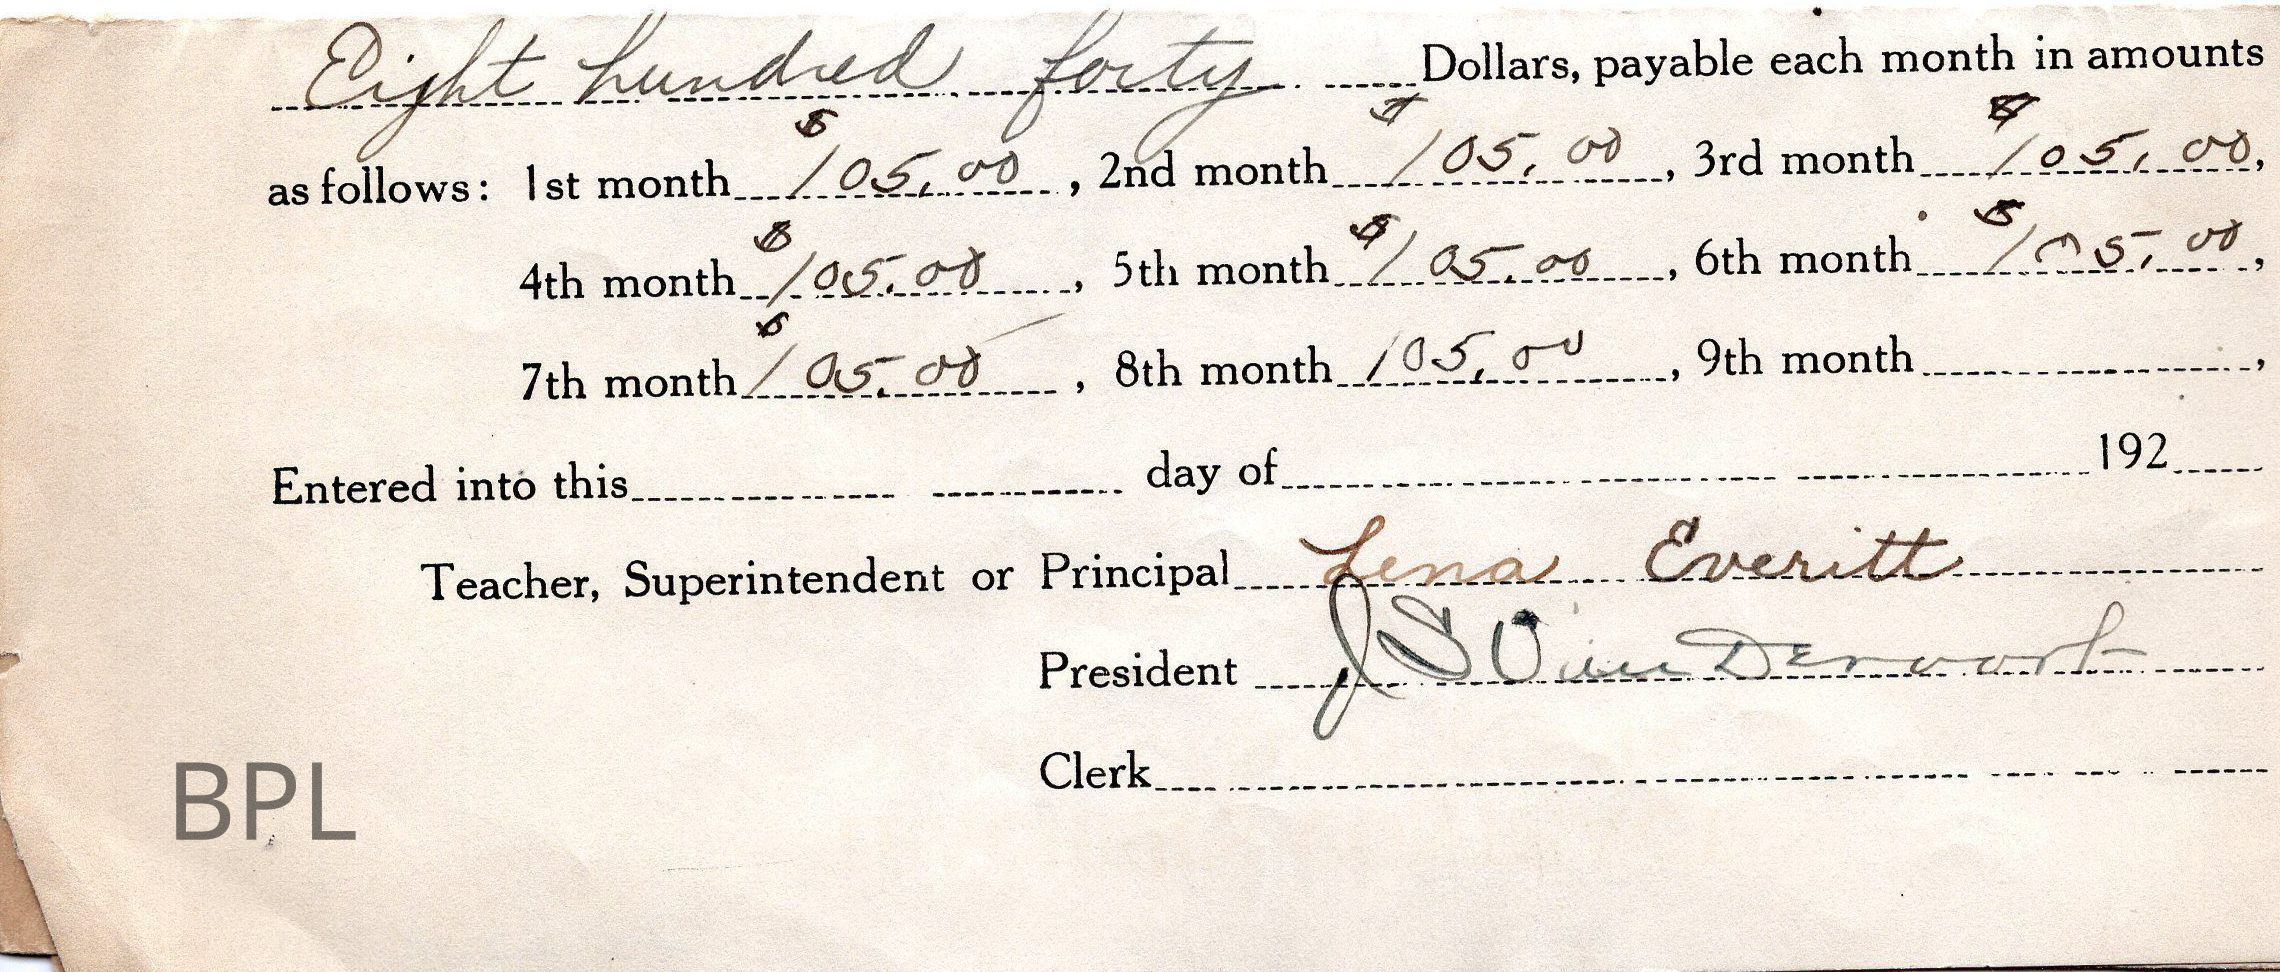 Eight hundred forty Dollars, payable each month in amounts
as follows: 1st month $105.00, 2nd month $105.00, 3rd month $105.00,
4th month $105.00, 5th month $105.00, 6th month $105.00,
7th month $105.00, 8th month 105.00, 9th month ,
Entered into this day of 192
Teacher, Superintendent or Principal Lena Everitt
President J S Van Dervort
Clerk
BPL